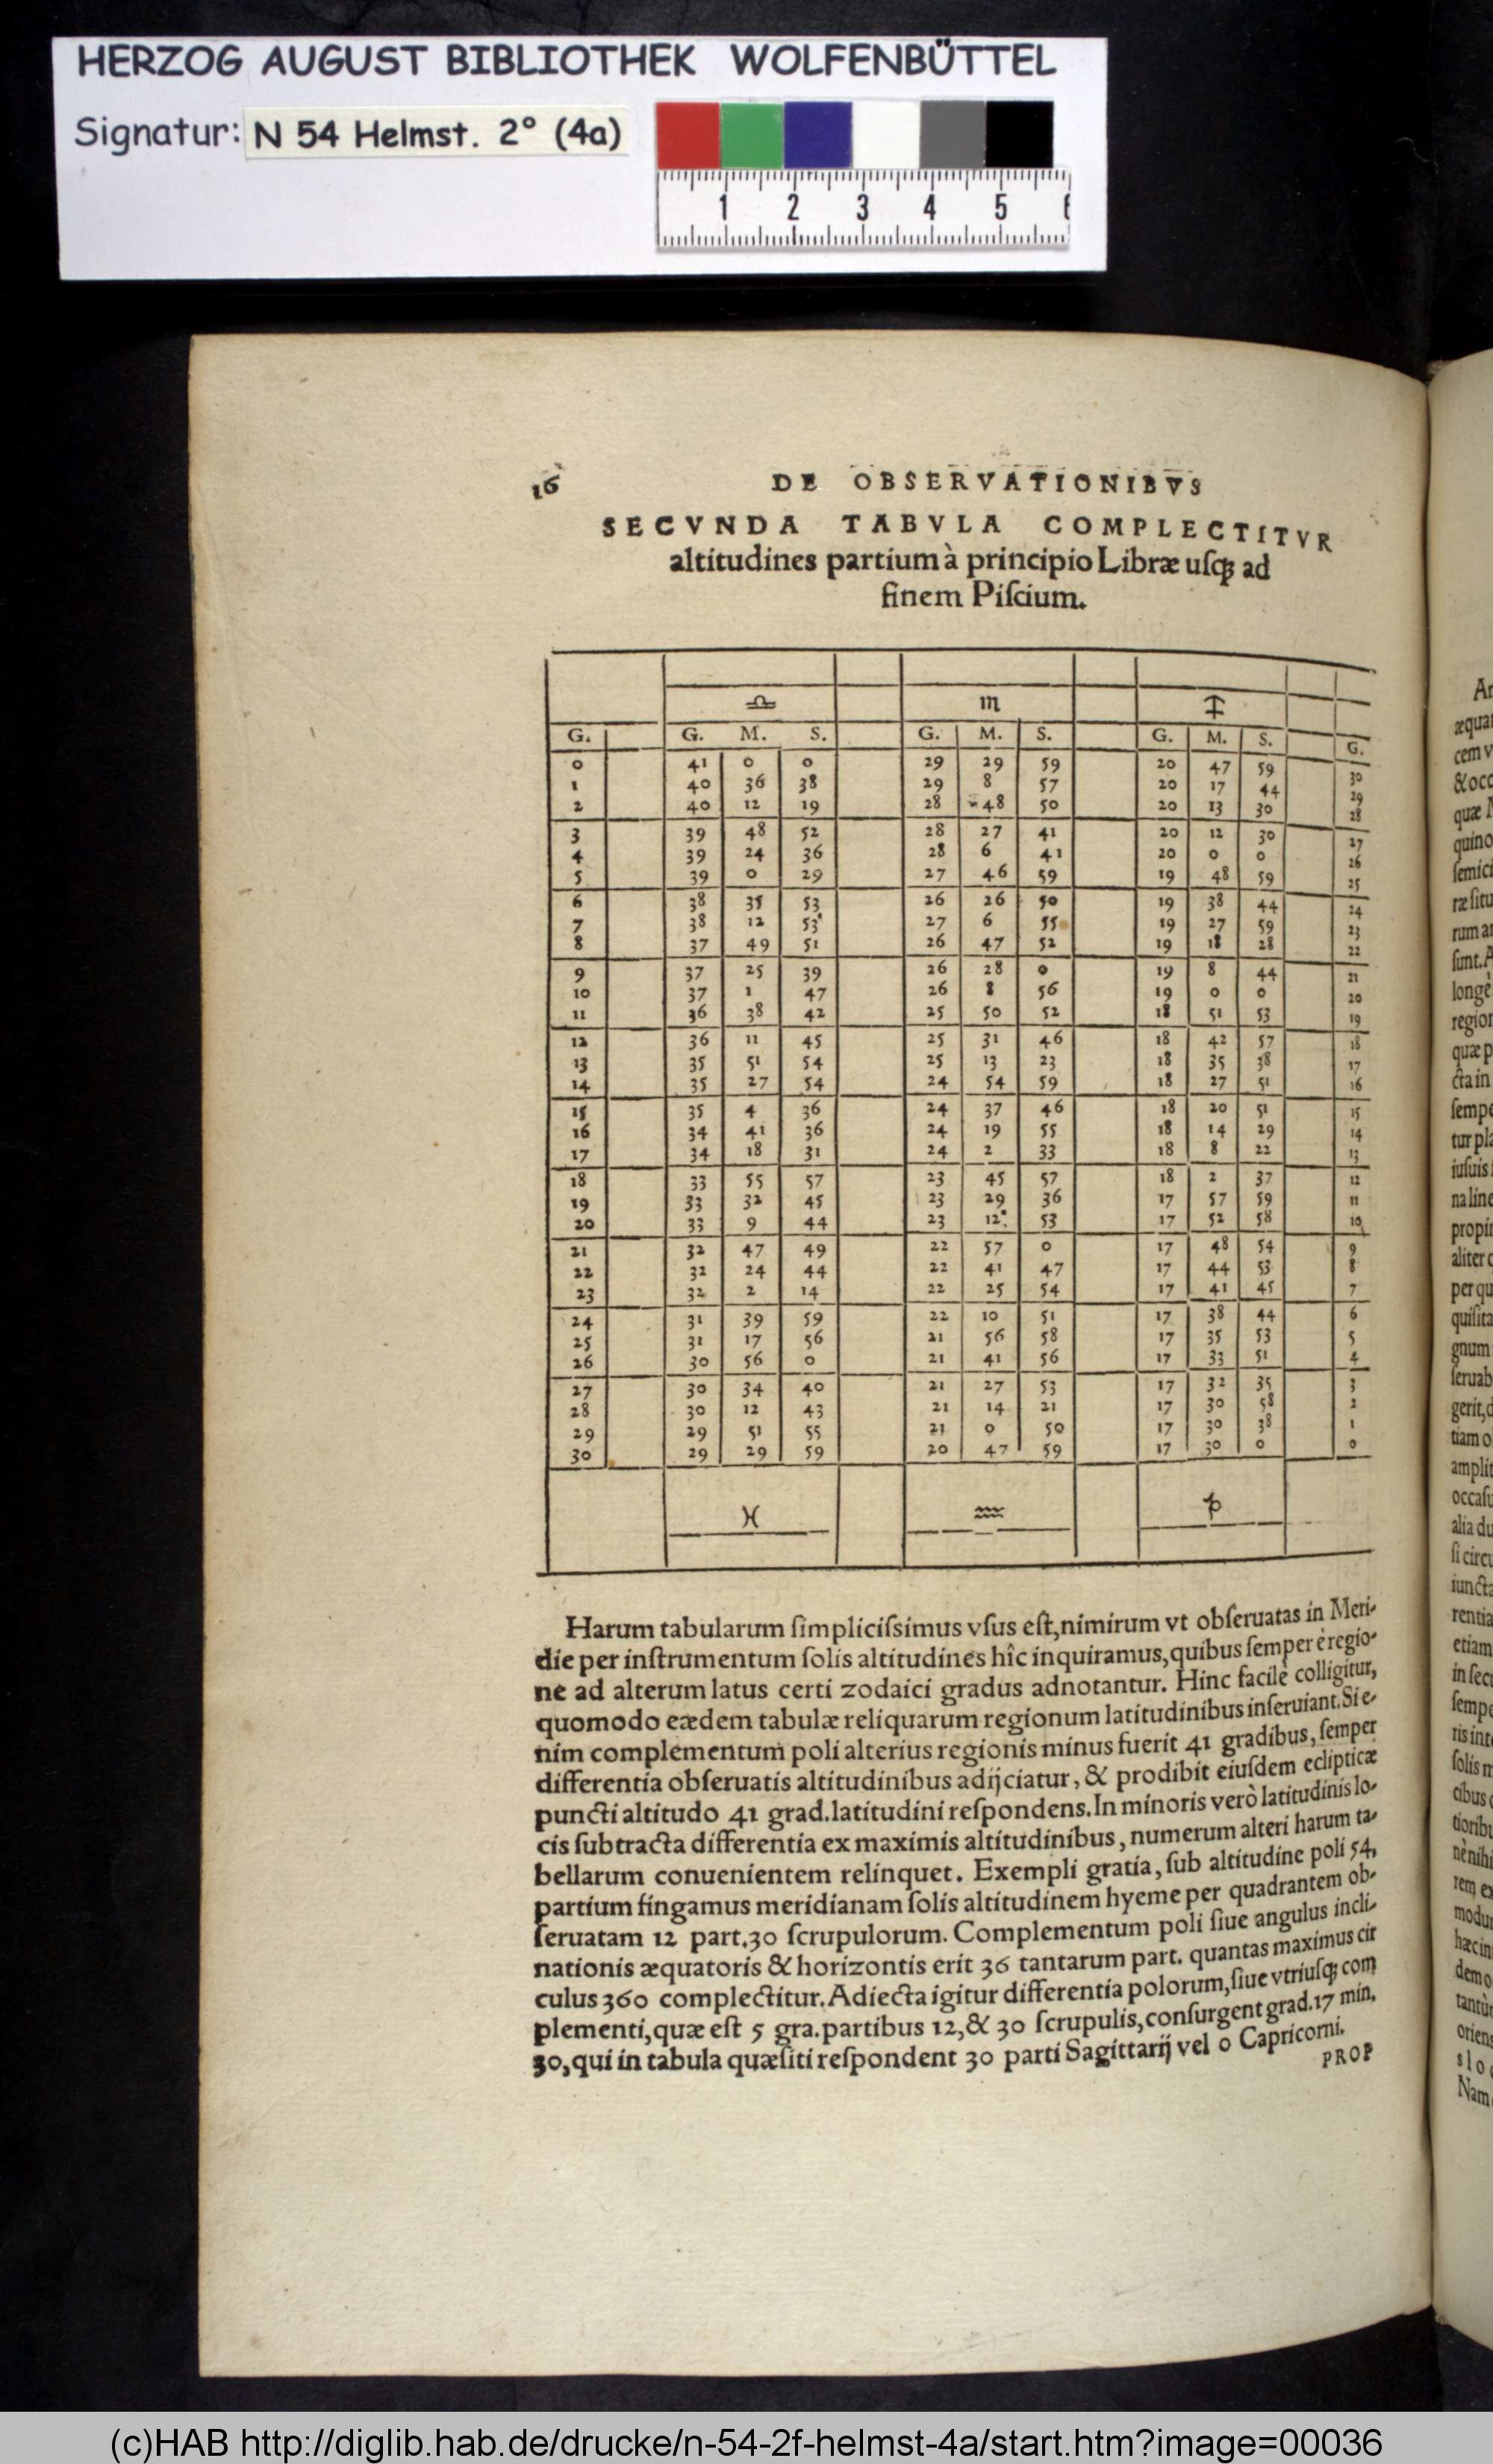 HERZOG AUGUST BIBLIOTHEK WOLFENBÜTTEL
Signatur: N 54 Helmst. 2° (4a)
1 2 3 4 5
16 DE OBSERVATIONIBVS
SECVNDA TABVLA COMPLECTITVR
altitudines partium à principio Libræ uſqꝫ ad
finem Piſcium.
♎ ♏ ♐
G. G. M. S. G. M. S. G. M. S. G.
0 41 0 0 29 29 59 20 47 59 30
1 40 36 38 29 8 57 20 17 44 29
2 40 12 19 28 48 50 20 13 30 28
3 39 48 52 28 27 41 20 12 30 27
4 39 24 36 28 6 41 20 0 0 26
5 39 0 29 27 46 59 19 48 59 25
6 38 35 53 26 26 50 19 38 44 24
7 38 12 53 27 6 55 19 27 59 23
8 37 49 51 26 47 52 19 18 28 22
9 37 25 39 26 28 0 19 8 44 21
10 37 1 47 26 8 56 19 0 0 20
11 36 38 42 25 50 52 18 51 53 19
12 36 11 45 25 31 46 18 42 57 18
13 35 51 54 25 13 23 18 35 38 17
14 35 27 54 24 54 59 18 27 51 16
15 35 4 36 24 37 46 18 20 51 15
16 34 41 36 24 19 55 18 14 29 14
17 34 18 31 24 2 33 18 8 22 13
18 33 55 57 23 45 57 18 2 37 12
19 33 32 45 23 29 36 17 57 59 11
20 33 9 44 23 12 53 17 52 58 10
21 32 47 49 22 57 0 17 48 54 9
22 32 24 44 22 41 47 17 44 53 8
23 32 2 14 22 25 54 17 41 45 7
24 31 39 59 22 10 51 17 38 44 6
25 31 17 56 21 56 58 17 35 53 5
26 30 56 0 21 41 56 17 33 51 4
27 30 34 40 21 27 53 17 32 35 3
28 30 12 43 21 14 21 17 30 58 2
29 29 51 55 21 0 50 17 30 38 1
30 29 29 59 20 47 59 17 30 0 0
♓ ♒ ♑
Harum tabularum ſimpliciſsimus vſus eſt, nimirum vt obſeruatas in Meri-
die per inſtrumentum ſolis altitudines hîc inquiramus, quibus ſemper è regio-
ne ad alterum latus certi zodaici gradus adnotantur. Hinc facilè colligitur,
quomodo eædem tabulæ reliquarum regionum latitudinibus inſeruiant. Si e-
nim complementum poli alterius regionis minus fuerit 41 gradibus, ſemper
differentia obſeruatis altitudinibus adijciatur, & prodibit eiuſdem eclipticæ
puncti altitudo 41 grad. latitudini reſpondens. In minoris verò latitudinis lo-
cis ſubtracta differentia ex maximis altitudinibus, numerum alteri harum ta-
bellarum conuenientem relinquet. Exempli gratia, ſub altitudine poli 54,
partium fingamus meridianam ſolis altitudinem hyeme per quadrantem ob-
ſeruatam 12 part. 30 ſcrupulorum. Complementum poli ſiue angulus incli-
nationis æquatoris & horizontis erit 36 tantarum part. quantas maximus cir
culus 360 complectitur. Adiecta igitur differentia polorum, ſiue vtriuſqꝫ com
plementi, quæ eſt 5 gra. partibus 12, & 30 ſcrupulis, conſurgent grad. 17 min.
30, qui in tabula quæſiti reſpondent 30 parti Sagittarij vel 0 Capricorni.
PROP
(c)HAB http://diglib.hab.de/drucke/n-54-2f-helmst-4a/start.htm?image=00036